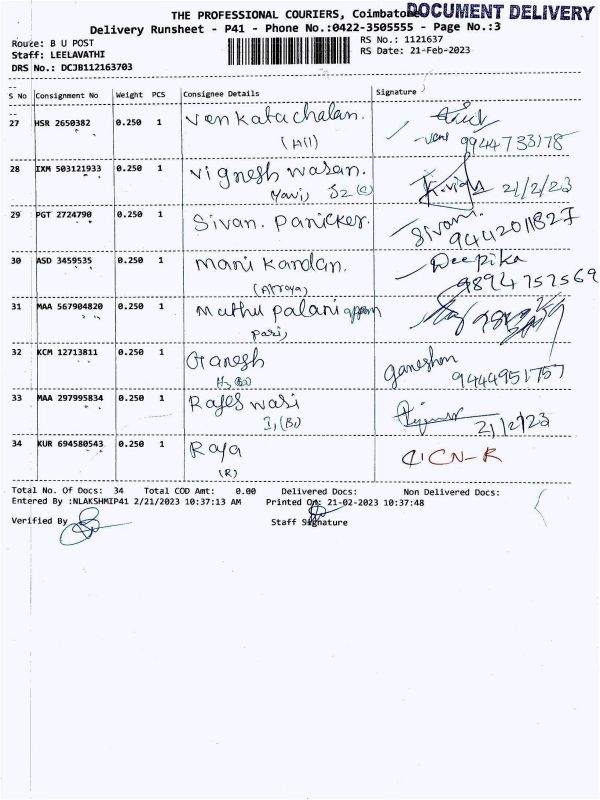 THE PROFESSIONAL COURIERS, Coimbatore
DOCUMENT DELIVERY
Delivery Runsheet - P41 - Phone No.:0422-3505555 - Page No.:3
Route: B U POST
RS No.: 1121637
Staff: LEELAVATHI
RS Date: 21-Feb-2023
DRS No.: DCJB112163703
S No Consignment No Weight PCS Consignee Details Signature
27 HSR 2650382 0.250 1 Venkatachalan.
(A11) 9944733178
28 IXM 503121933 0.250 1 Vignesh wasan.
21/2/23
29 PGT 2724790 0.250 1 Sivan. Panicker. Sivan.
9442011827
30 ASD 3459535 0.250 1 Mani Kandan. Deepika
9894757569
31 MAA 567904820 0.250 1 Muthu palani
32 KCM 12713811 0.250 1 Ganesh
9444951757
33 MAA 297995834 0.250 1 Rajeswari
21/2/23
34 KUR 694580543 0.250 1 Raja CN-R
(R)
Total No. Of Docs: 34 Total COD Amt: 0.00 Delivered Docs: Non Delivered Docs:
Entered By :NLAKSHMIP41 2/21/2023 10:37:13 AM Printed On: 21-02-2023 10:37:48
Verified By Staff Signature